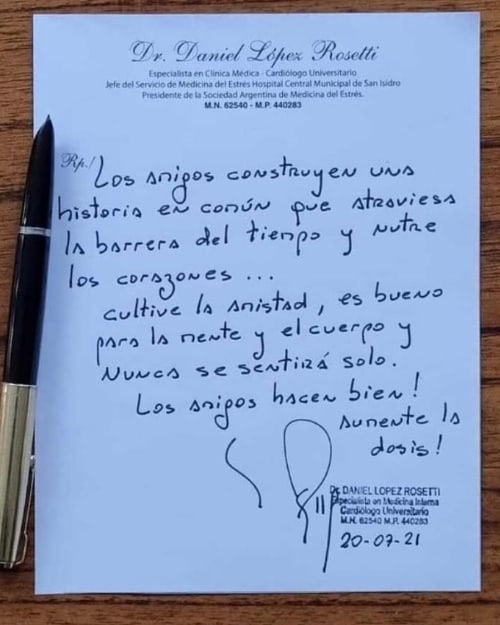 Dr. Daniel López Rosetti
Especialista en Clínica Médica - Cardiólogo Universitario
Jefe del Servicio de Medicina del Estrés Hospital Central Municipal de San Isidro
Presidente de la Sociedad Argentina de Medicina del Estrés.
M.N. 62540 - M.P. 440283
Rp./
Los amigos construyen una
historia en común que atraviesa
la barrera del tiempo y nutre
los corazones ...
cultive la amistad, es bueno
para la mente y el cuerpo y
nunca se sentirá solo.
Los amigos hacen bien!
aumente la
dosis!
Dr. DANIEL LOPEZ ROSETTI
Especialista en Medicina Interna
Cardiólogo Universitario
M.N. 62540 M.P. 440283
20-07-21